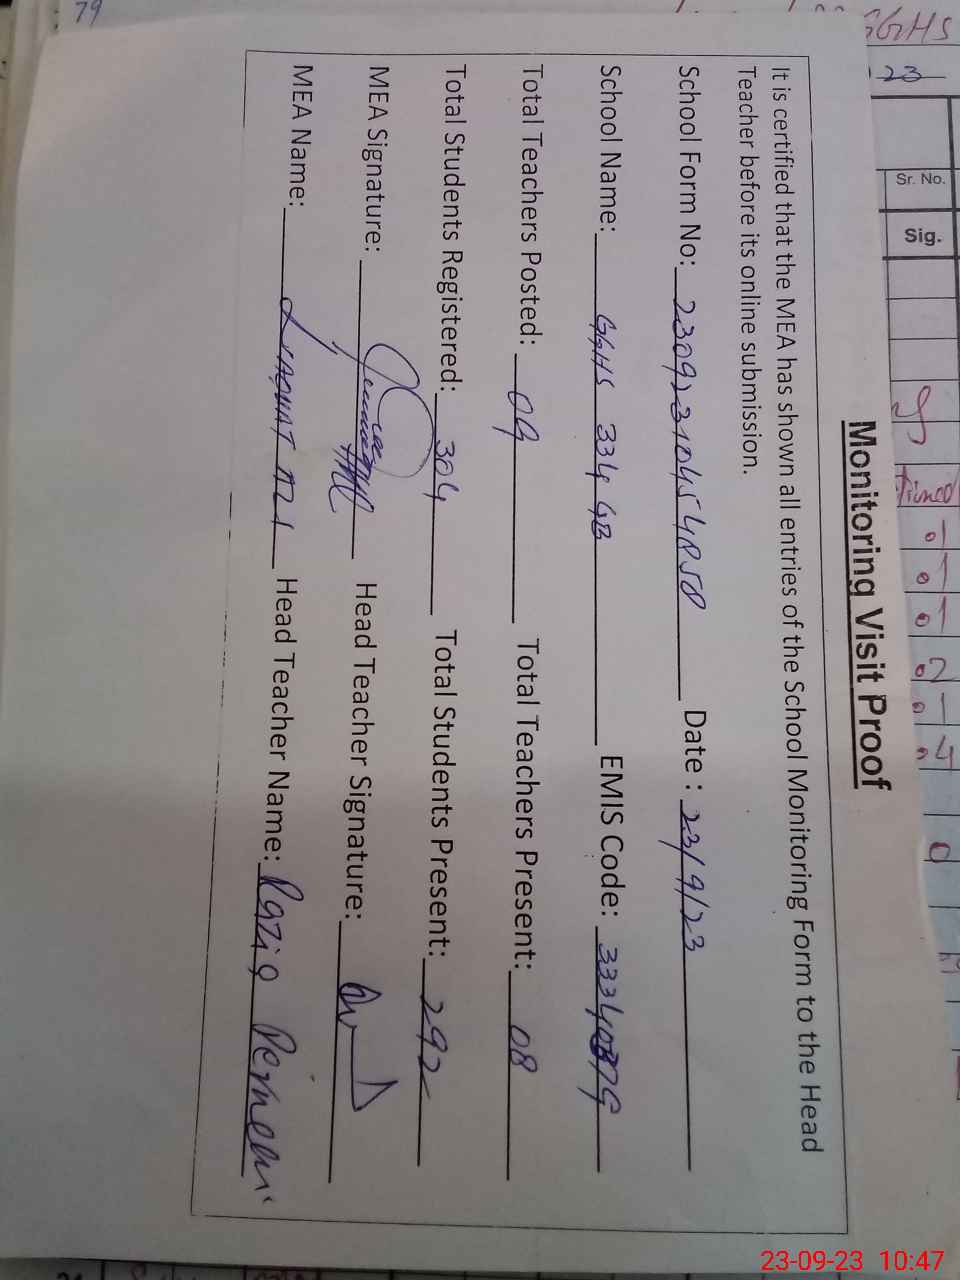 Monitoring Visit Proof
It is certified that the MEA has shown all entries of the School Monitoring Form to the Head
Teacher before its online submission.
School Form No: Date : 23/9/23
School Name: GGHS 334 GB EMIS Code:
Total Teachers Posted: 09 Total Teachers Present: 08
Total Students Registered: 304 Total Students Present: 292
MEA Signature: Head Teacher Signature:
MEA Name: LIAQUAT ALI Head Teacher Name: Razia
79
GGHS
23
Sr. No.
Sig.
23-09-23 10:47